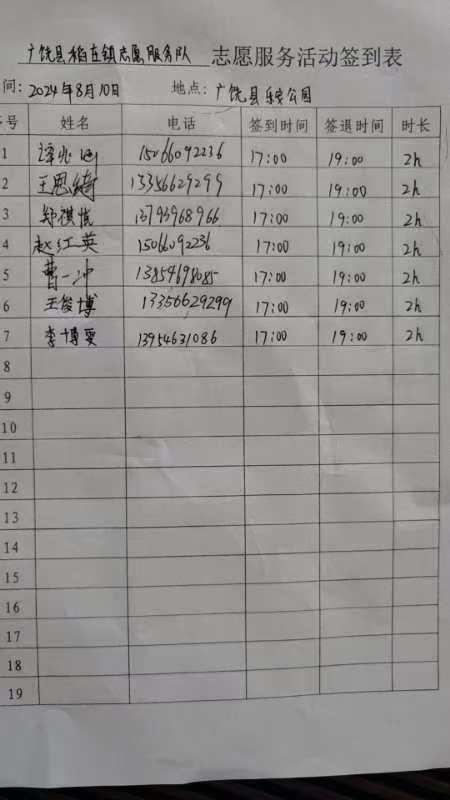 广饶县稻庄镇志愿服务队 志愿服务活动签到表
间: 2024年8月10日 地点: 广饶县乐安公园
序号 姓名 电话 签到时间 签退时间 时长
1 15066092236 17:00 19:00 2h
2 王思绮 13356629299 17:00 19:00 2h
3 郑祺恺 13793968966 17:00 19:00 2h
4 赵红英 15066092236 17:00 19:00 2h
5 曹一冲 13854698085 17:00 19:00 2h
6 王俊博 13356629299 17:00 19:00 2h
7 李博雯 13954631086 17:00 19:00 2h
8
9
10
11
12
13
14
15
16
17
18
19